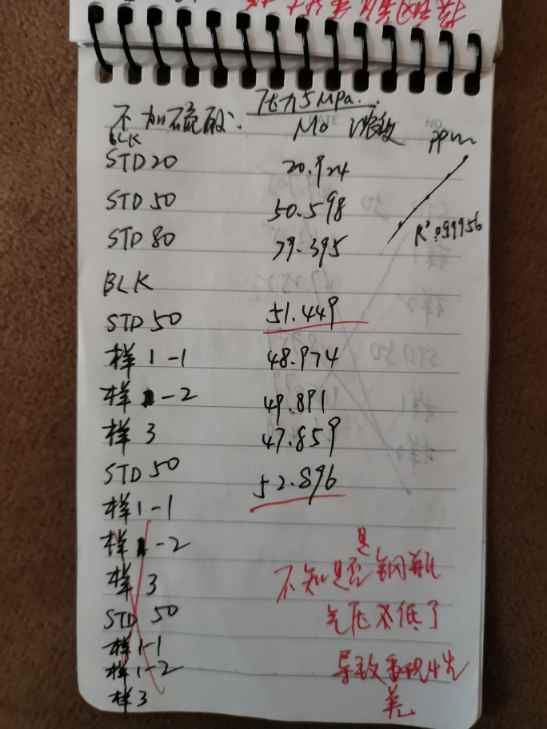 不加硫酸: 压力5MPa.
Mo 浓度 ppm
BLK
STD 20 20.924
STD 50 50.598
STD 80 79.395
R²: 0.99956
BLK
STD 50 51.449
样 1-1 48.974
样 1-2 49.891
样 3 47.859
STD 50 52.896
样 1-1
样 1-2
样 3
STD 50
样 1-1
样 1-2
样 3
是
不知是否钢瓶
气压太低了
导致
差